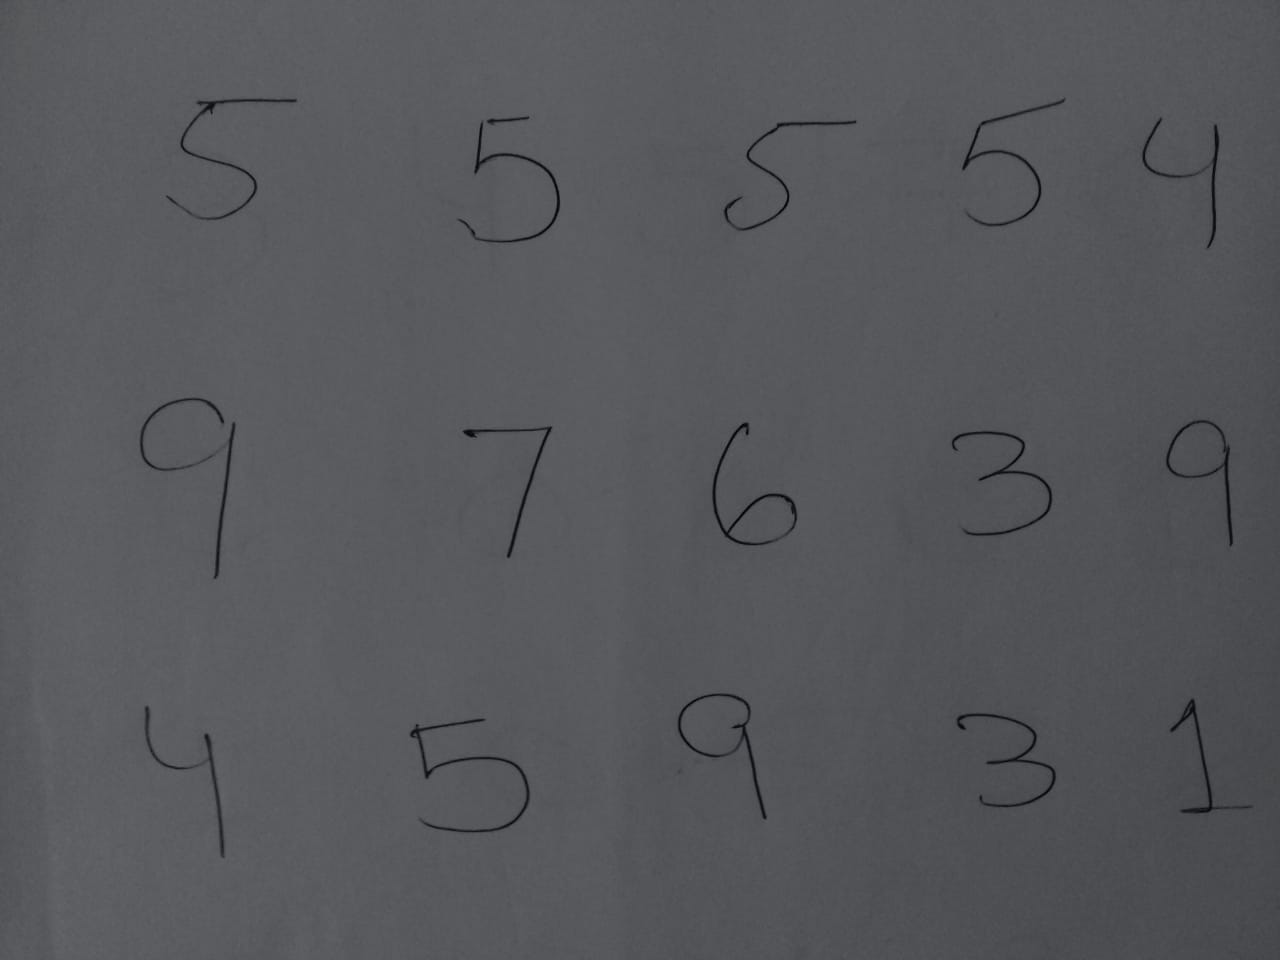 5 5 5 5 4
9 7 6 3 9
4 5 9 3 1